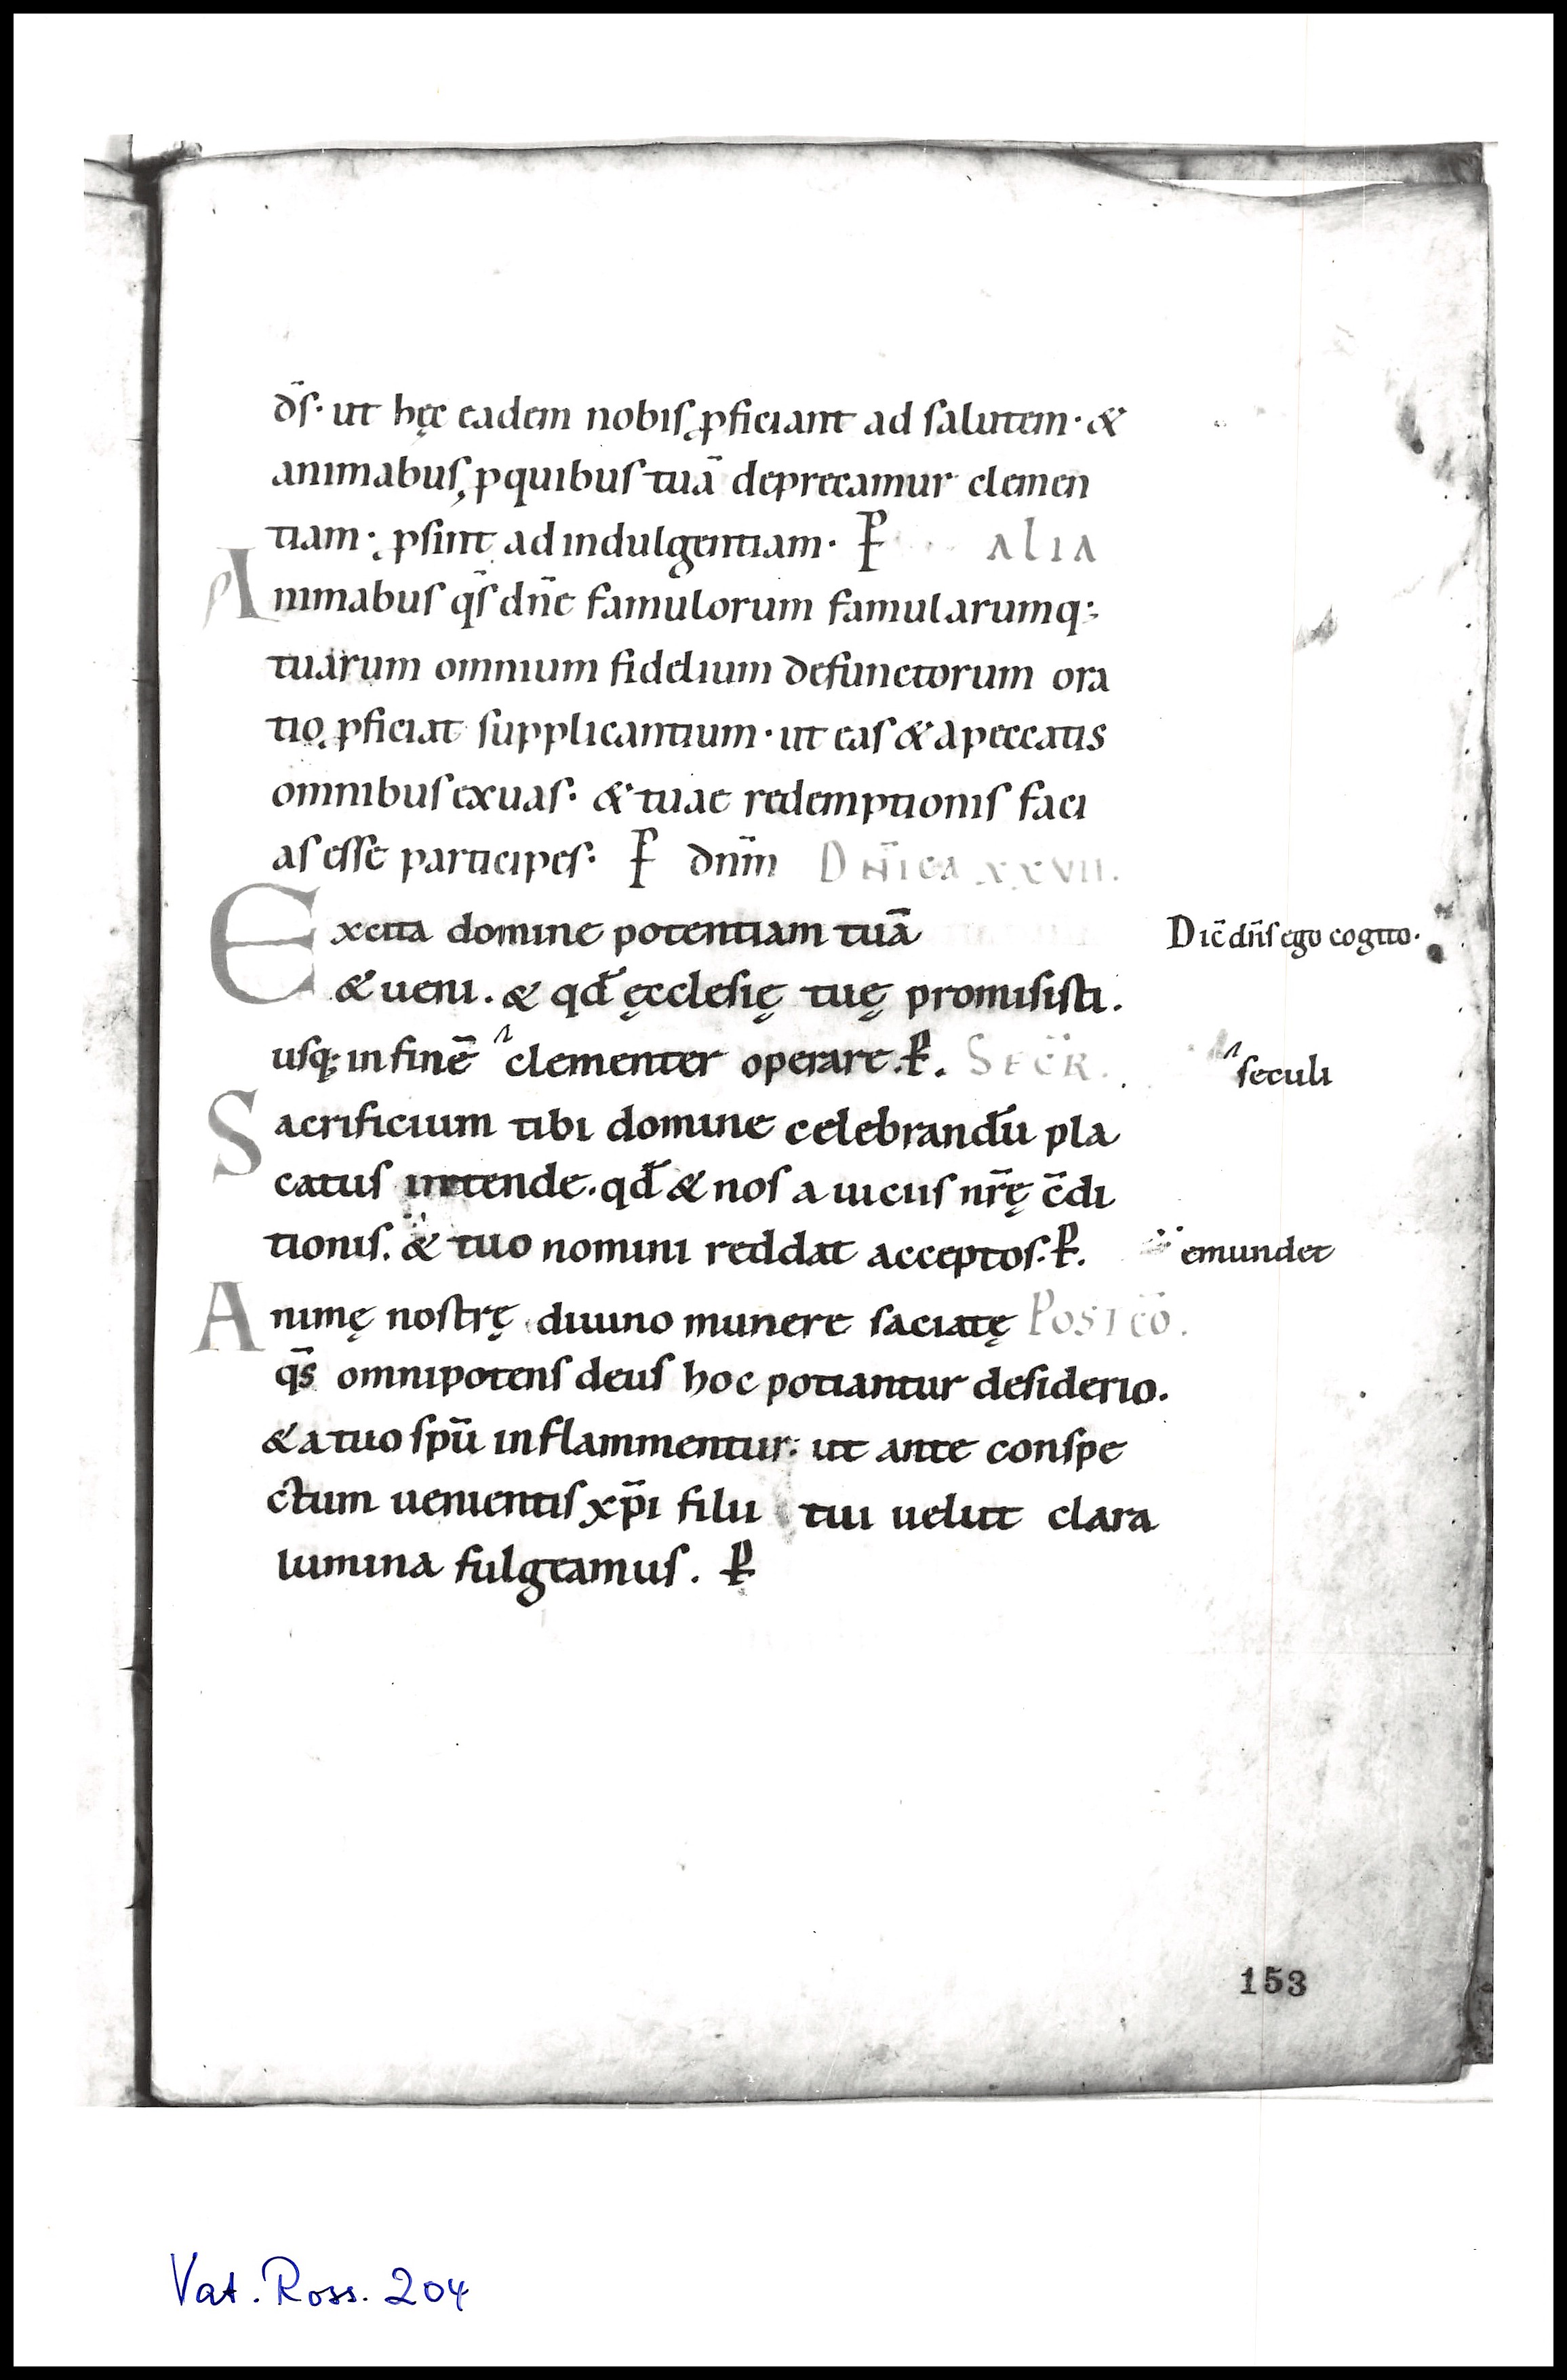 d̄s· ut hęc eadem nobis ꝓficiant ad salutem· &
animabus, ꝓ quibus tuā deprecamur clemen
tiam·, ꝓsint ad indulgentiam· P ALIA
Animabus q̄s dn̄e famulorum famularumq:
tuarum omnium fidelium defunctorum ora
tio ꝓficiat supplicantium· ut eas & a peccatis
omnibus exuas· & tuae redemptionis faci
as esse participes· P dnm̄ Dn̄ica XXVII.
Excita domine potentiam tuā Dic̄ dn̄s ego cogito·
& ueni. & qđ ęcclesię tuę promisisti.
usq; in finē clementer operare. P. SECR̄. seculi
Sacrificium tibi domine celebrandū pla
catus intende. qđ & nos a uiciis nr̄ę c̄di
tionis. & tuo nomini reddat acceptos. P. emundet
Animę nostrę diuino munere saciatę POSTCŌ.
q̄s omnipotens deus hoc potiantur desiderio.
& a tuo sp̄u inflammentur. ut ante conspe
ctum uenientis xp̄i filii tui uelut clara
lumina fulgeamus. P
153
Vat. Ross. 204